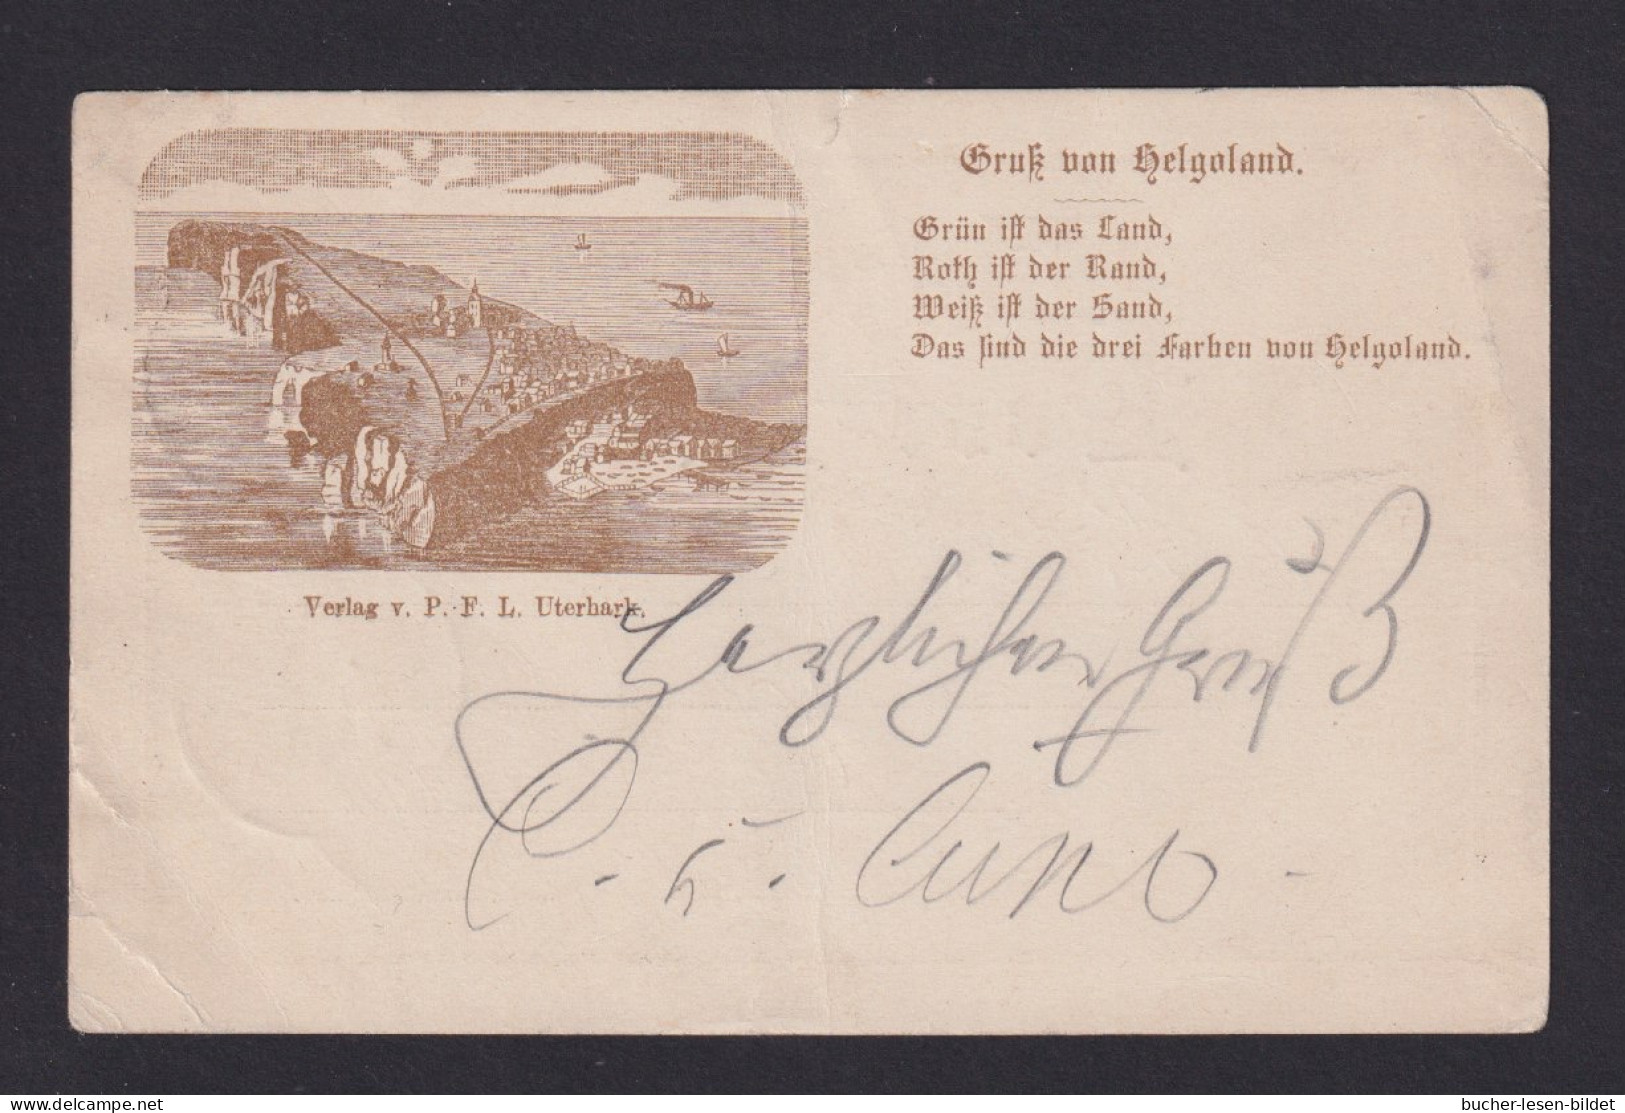 Gruß von Helgoland.
Grün ist das Land,
Roth ist der Rand,
Weiß ist der Sand,
Das sind die drei Farben von Helgoland.
Verlag v. P. F. L. Uterhark.
Herzlichen Gruß
delcampe.net
bucher-lesen-bildet